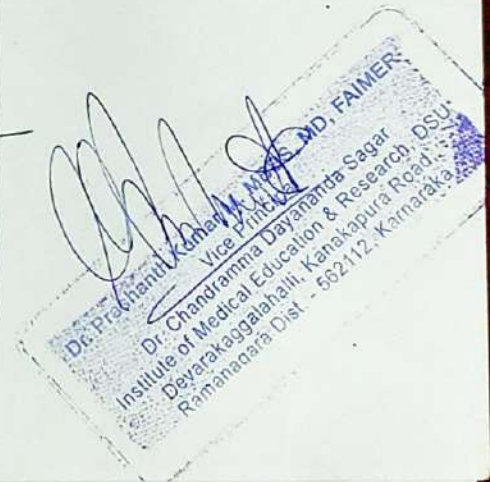 Dr. Prashanth Kumar M, MBBS, MD, FAIMER
Vice Principal
Dr. Chandramma Dayananda Sagar
Institute of Medical Education & Research, DSU
Devarakaggalahalli, Kanakapura Road,
Ramanagara Dist. - 562112, Karnaraka